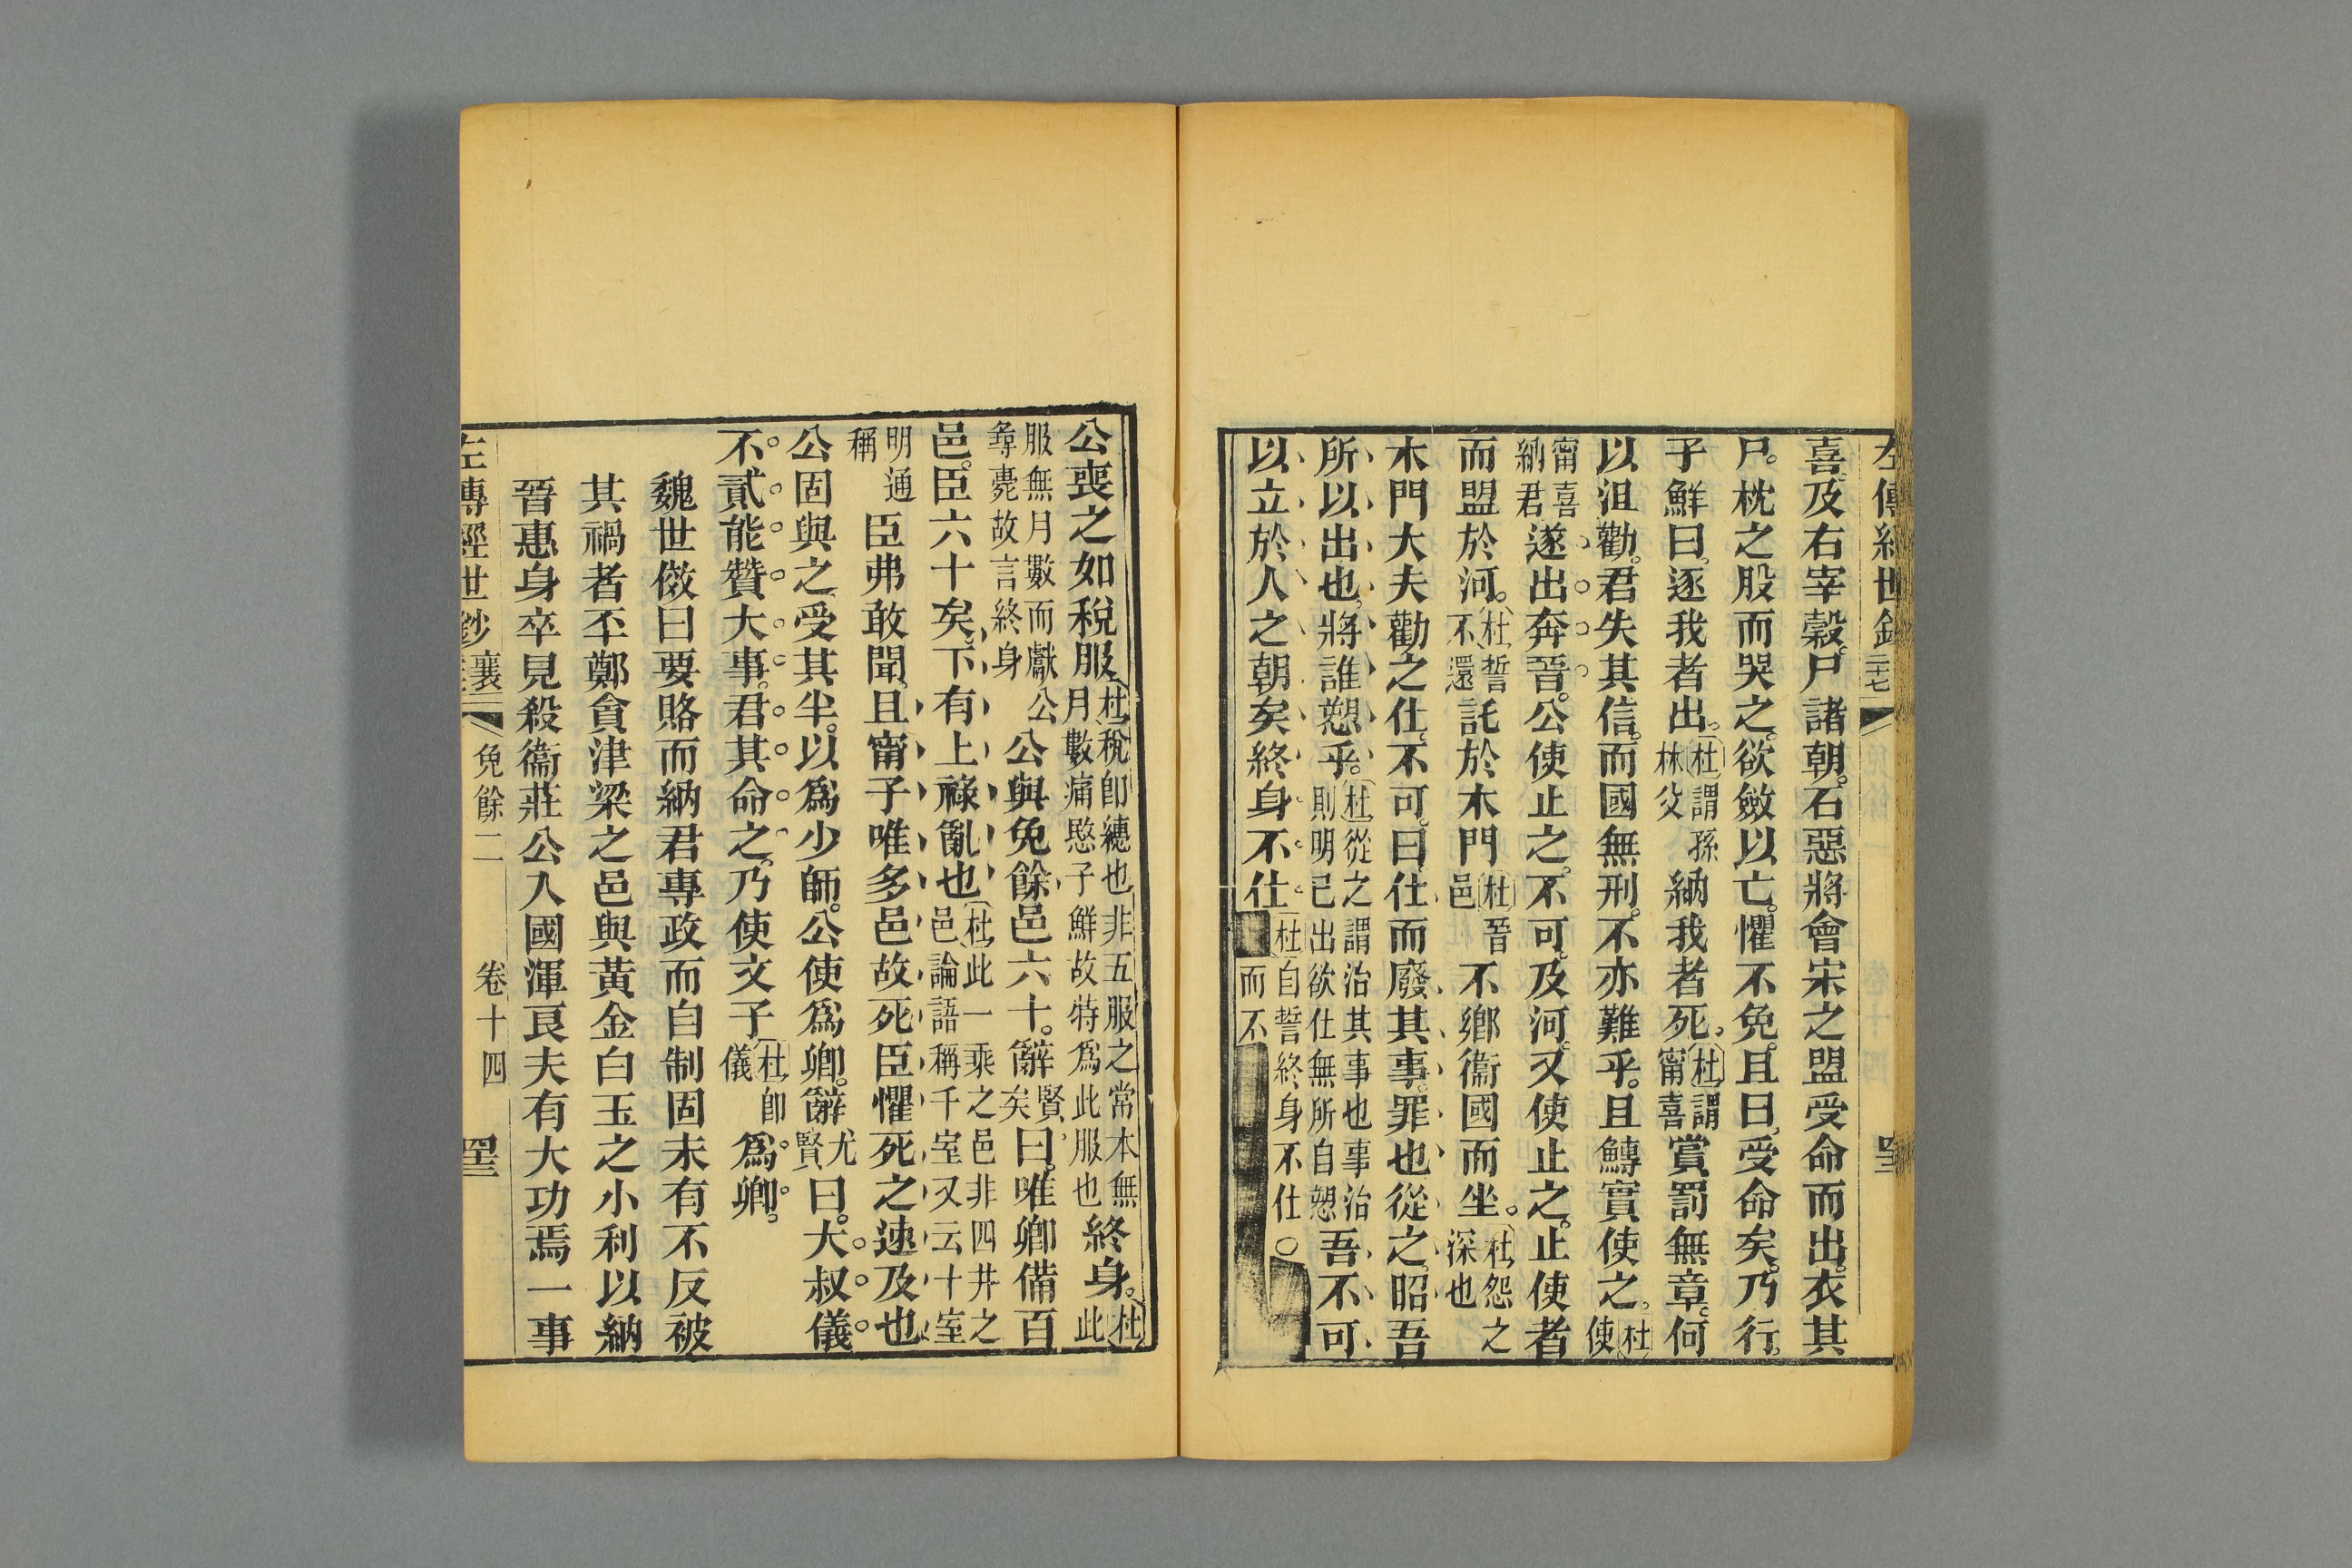 左傳經世鈔
二十七
喜及右宰穀尸諸朝石惡將會宋之盟受命而出衣其
尸枕之股而哭之欲斂以亡懼不免且曰受命矣乃行
子鮮曰逐我者出杜謂孫林父納我者死杜謂甯喜賞罰無章何
以沮勸君失其信而國無刑不亦難乎且鱄實使之杜使
甯喜納君遂出奔晉公使止之不可及河又使止之止使者
而盟於河杜誓不還託於木門杜晉邑不鄉衞國而坐杜怨之深也
木門大夫勸之仕不可曰仕而廢其事罪也從之昭吾
所以出也將誰愬乎杜從之謂治其事也事治則明已出欲仕無所自愬吾不可
以立於人之朝矣終身不仕杜自誓終身不仕而不
公喪之如稅服杜稅即繐也非五服之常本無月數痛愍子鮮故特爲此服也終身杜此
服無月數而獻公尋薨故言終身公與免餘邑六十辭賢矣曰唯卿備百
邑臣六十矣下有上祿亂也杜此一乘之邑非四井之邑論語稱千室又云十室
明通稱臣弗敢聞且甯子唯多邑故死臣懼死之速及也
公固與之受其半以爲少師公使爲卿辭尤賢曰大叔儀
不貳能贊大事君其命之乃使文子杜即儀爲卿
魏世傚曰要賂而納君專政而自制固未有不反被
其禍者丕鄭貪津梁之邑與黃金白玉之小利以納
晉惠身卒見殺衞莊公入國渾良夫有大功焉一事
左傳經世鈔 襄 免餘二 卷十四